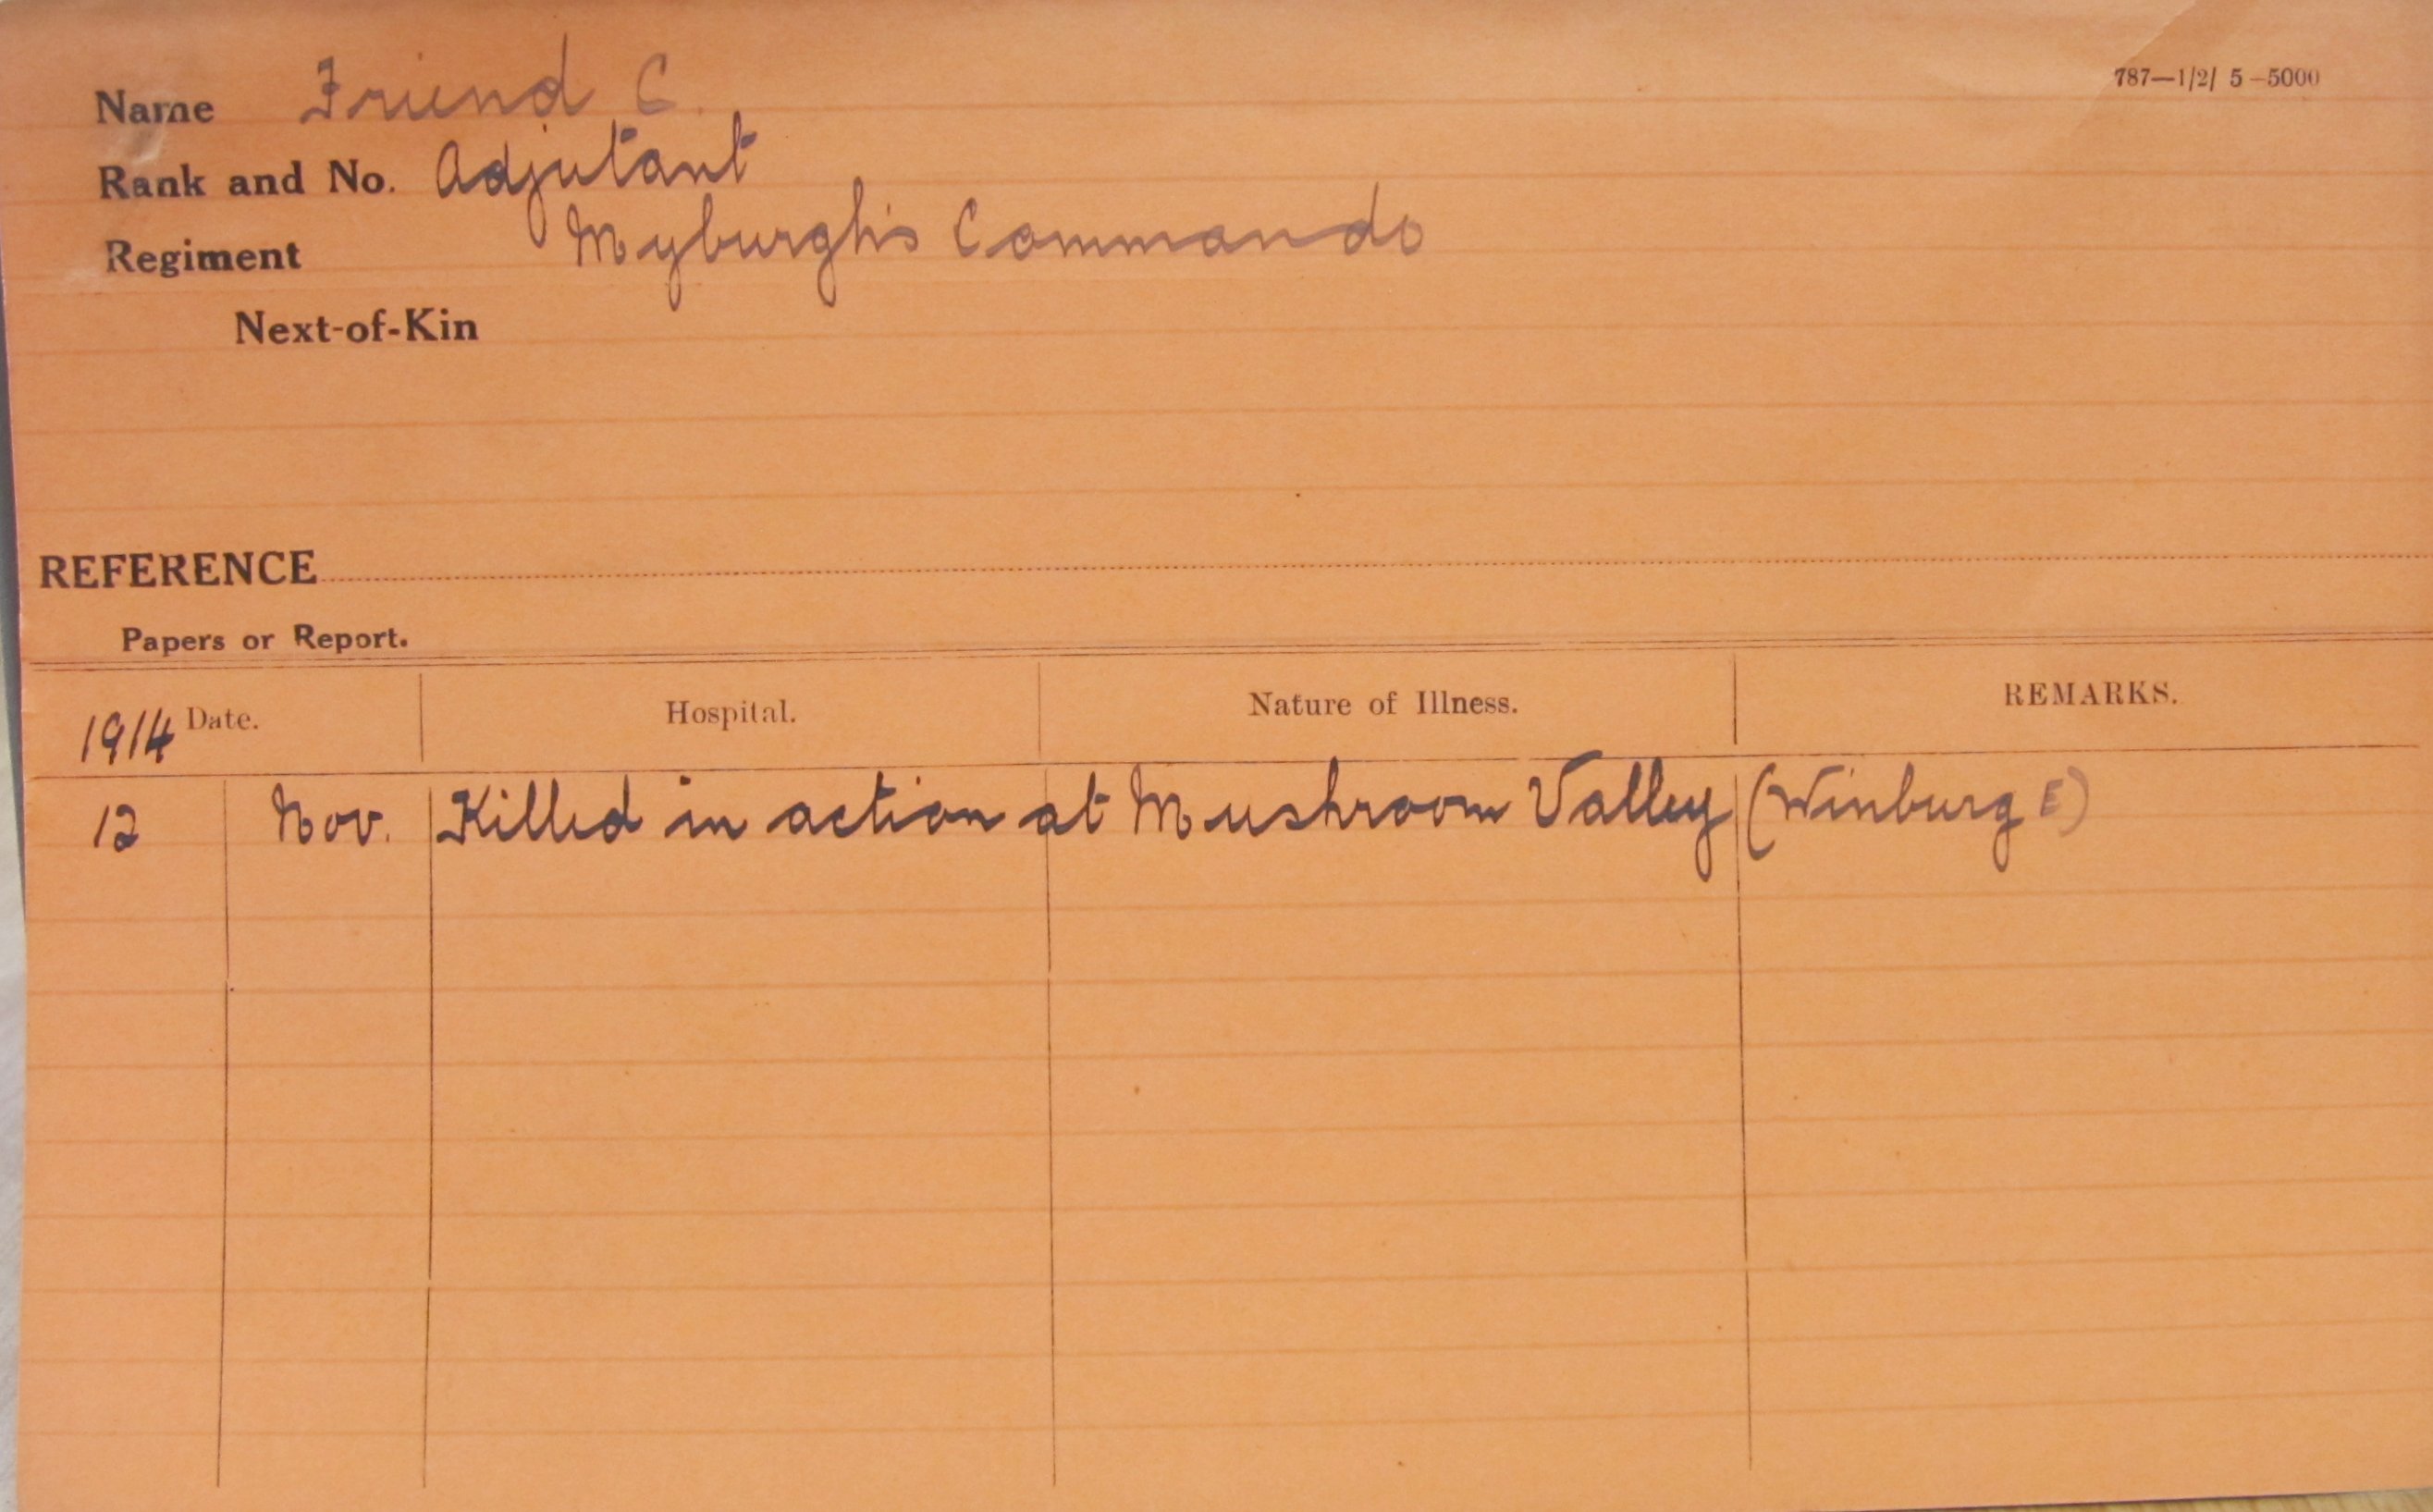 787—1/2/ 5—5000
Name Friend C.
Rank and No. Adjutant
Regiment Myburgh's Commando
Next-of-Kin
REFERENCE
Papers or Report.
1914 Date. Hospital. Nature of Illness. REMARKS.
12 Nov. Killed in action at Mushroom Valley (Winburg E)